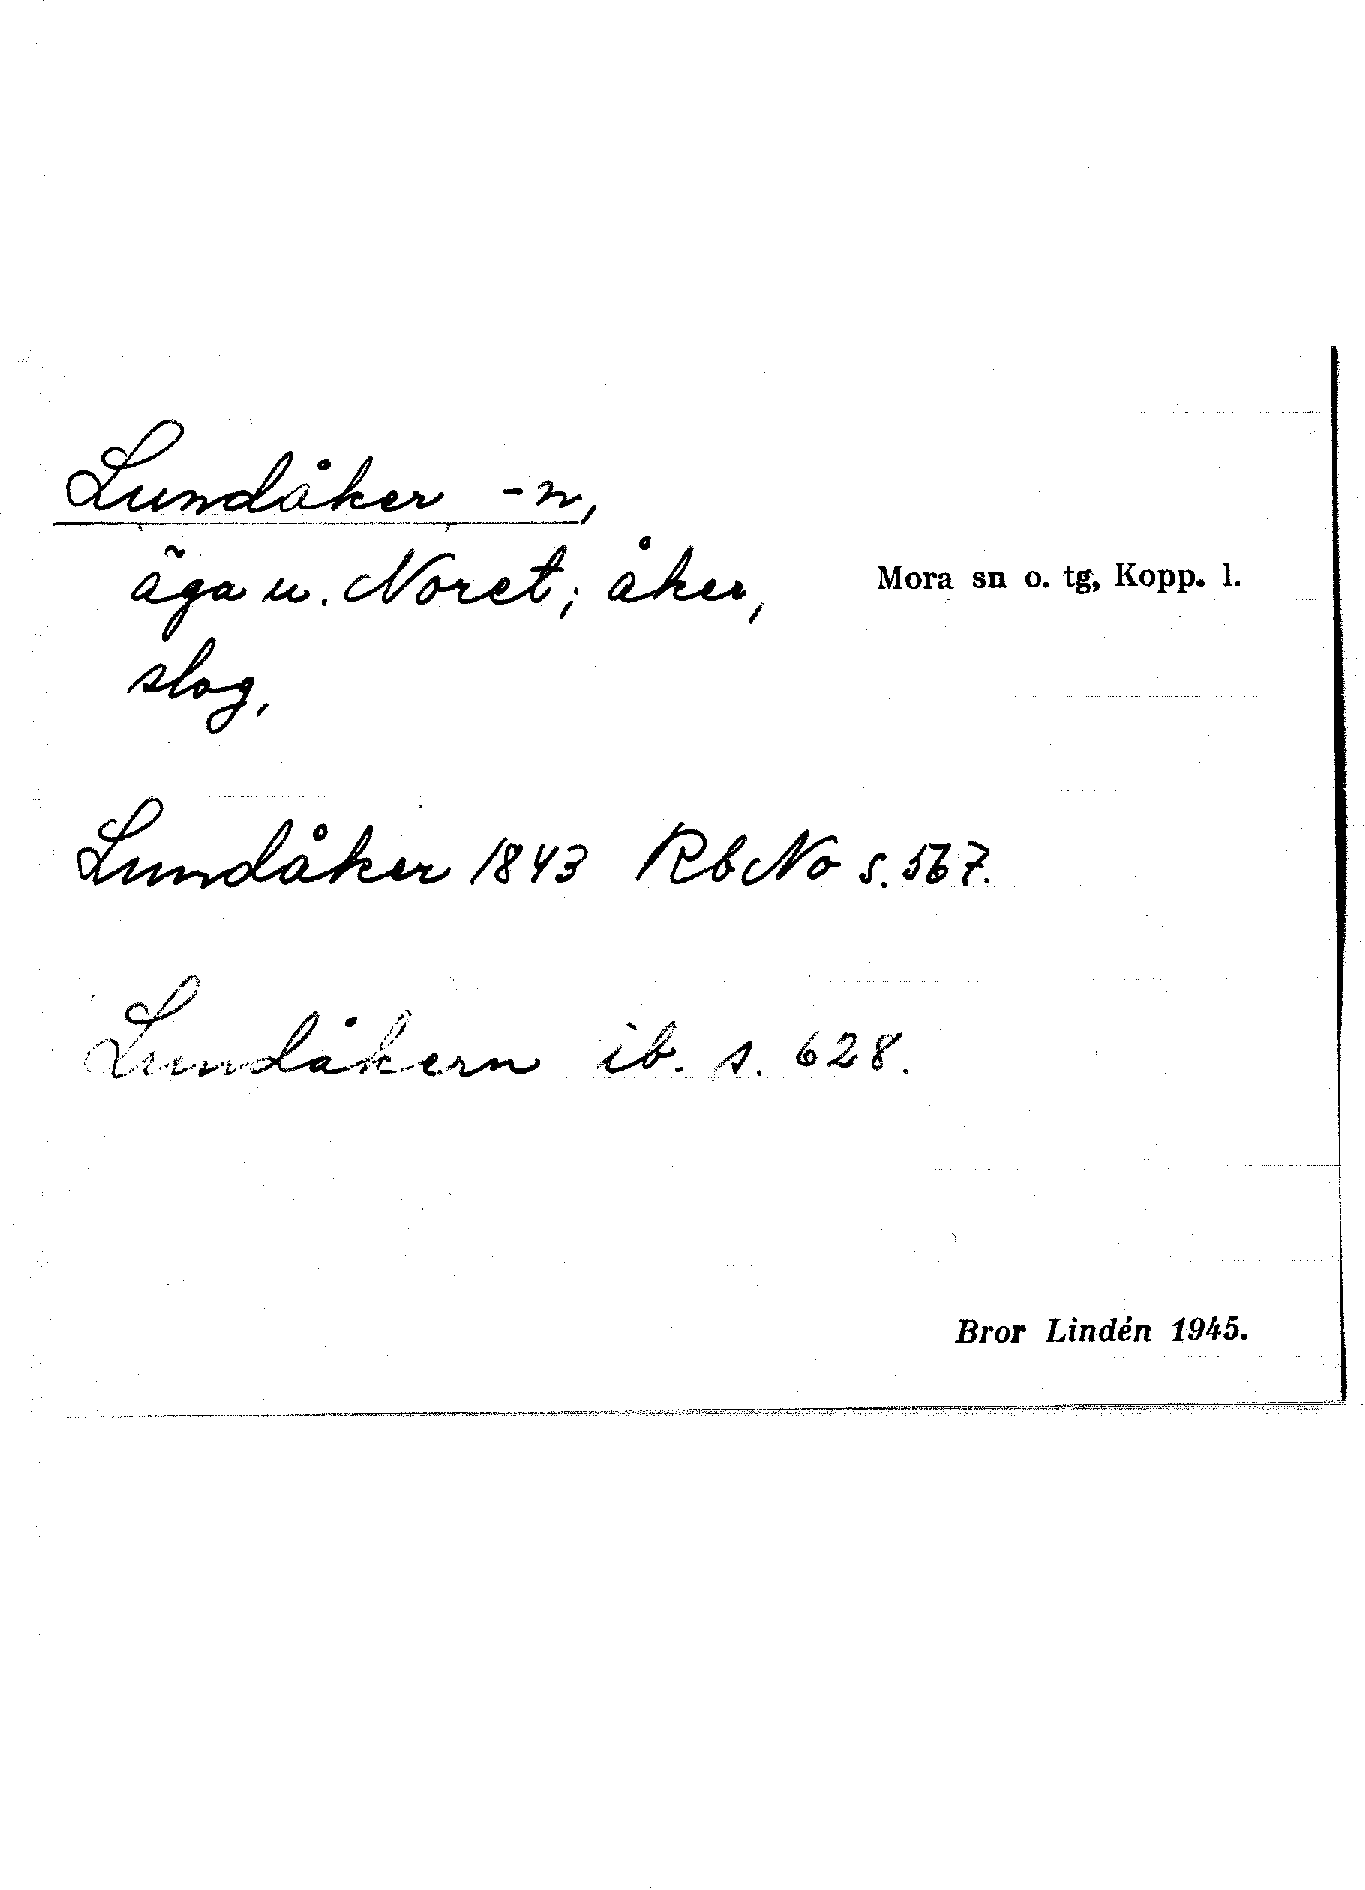 Lundåker -n,
äga u. Noret; åker,
Mora sn o. tg, Kopp. l.
slog,
Lundåker 1843 RbNo s. 567.
Lundåkern ib. s. 628.
Bror Lindén 1945.